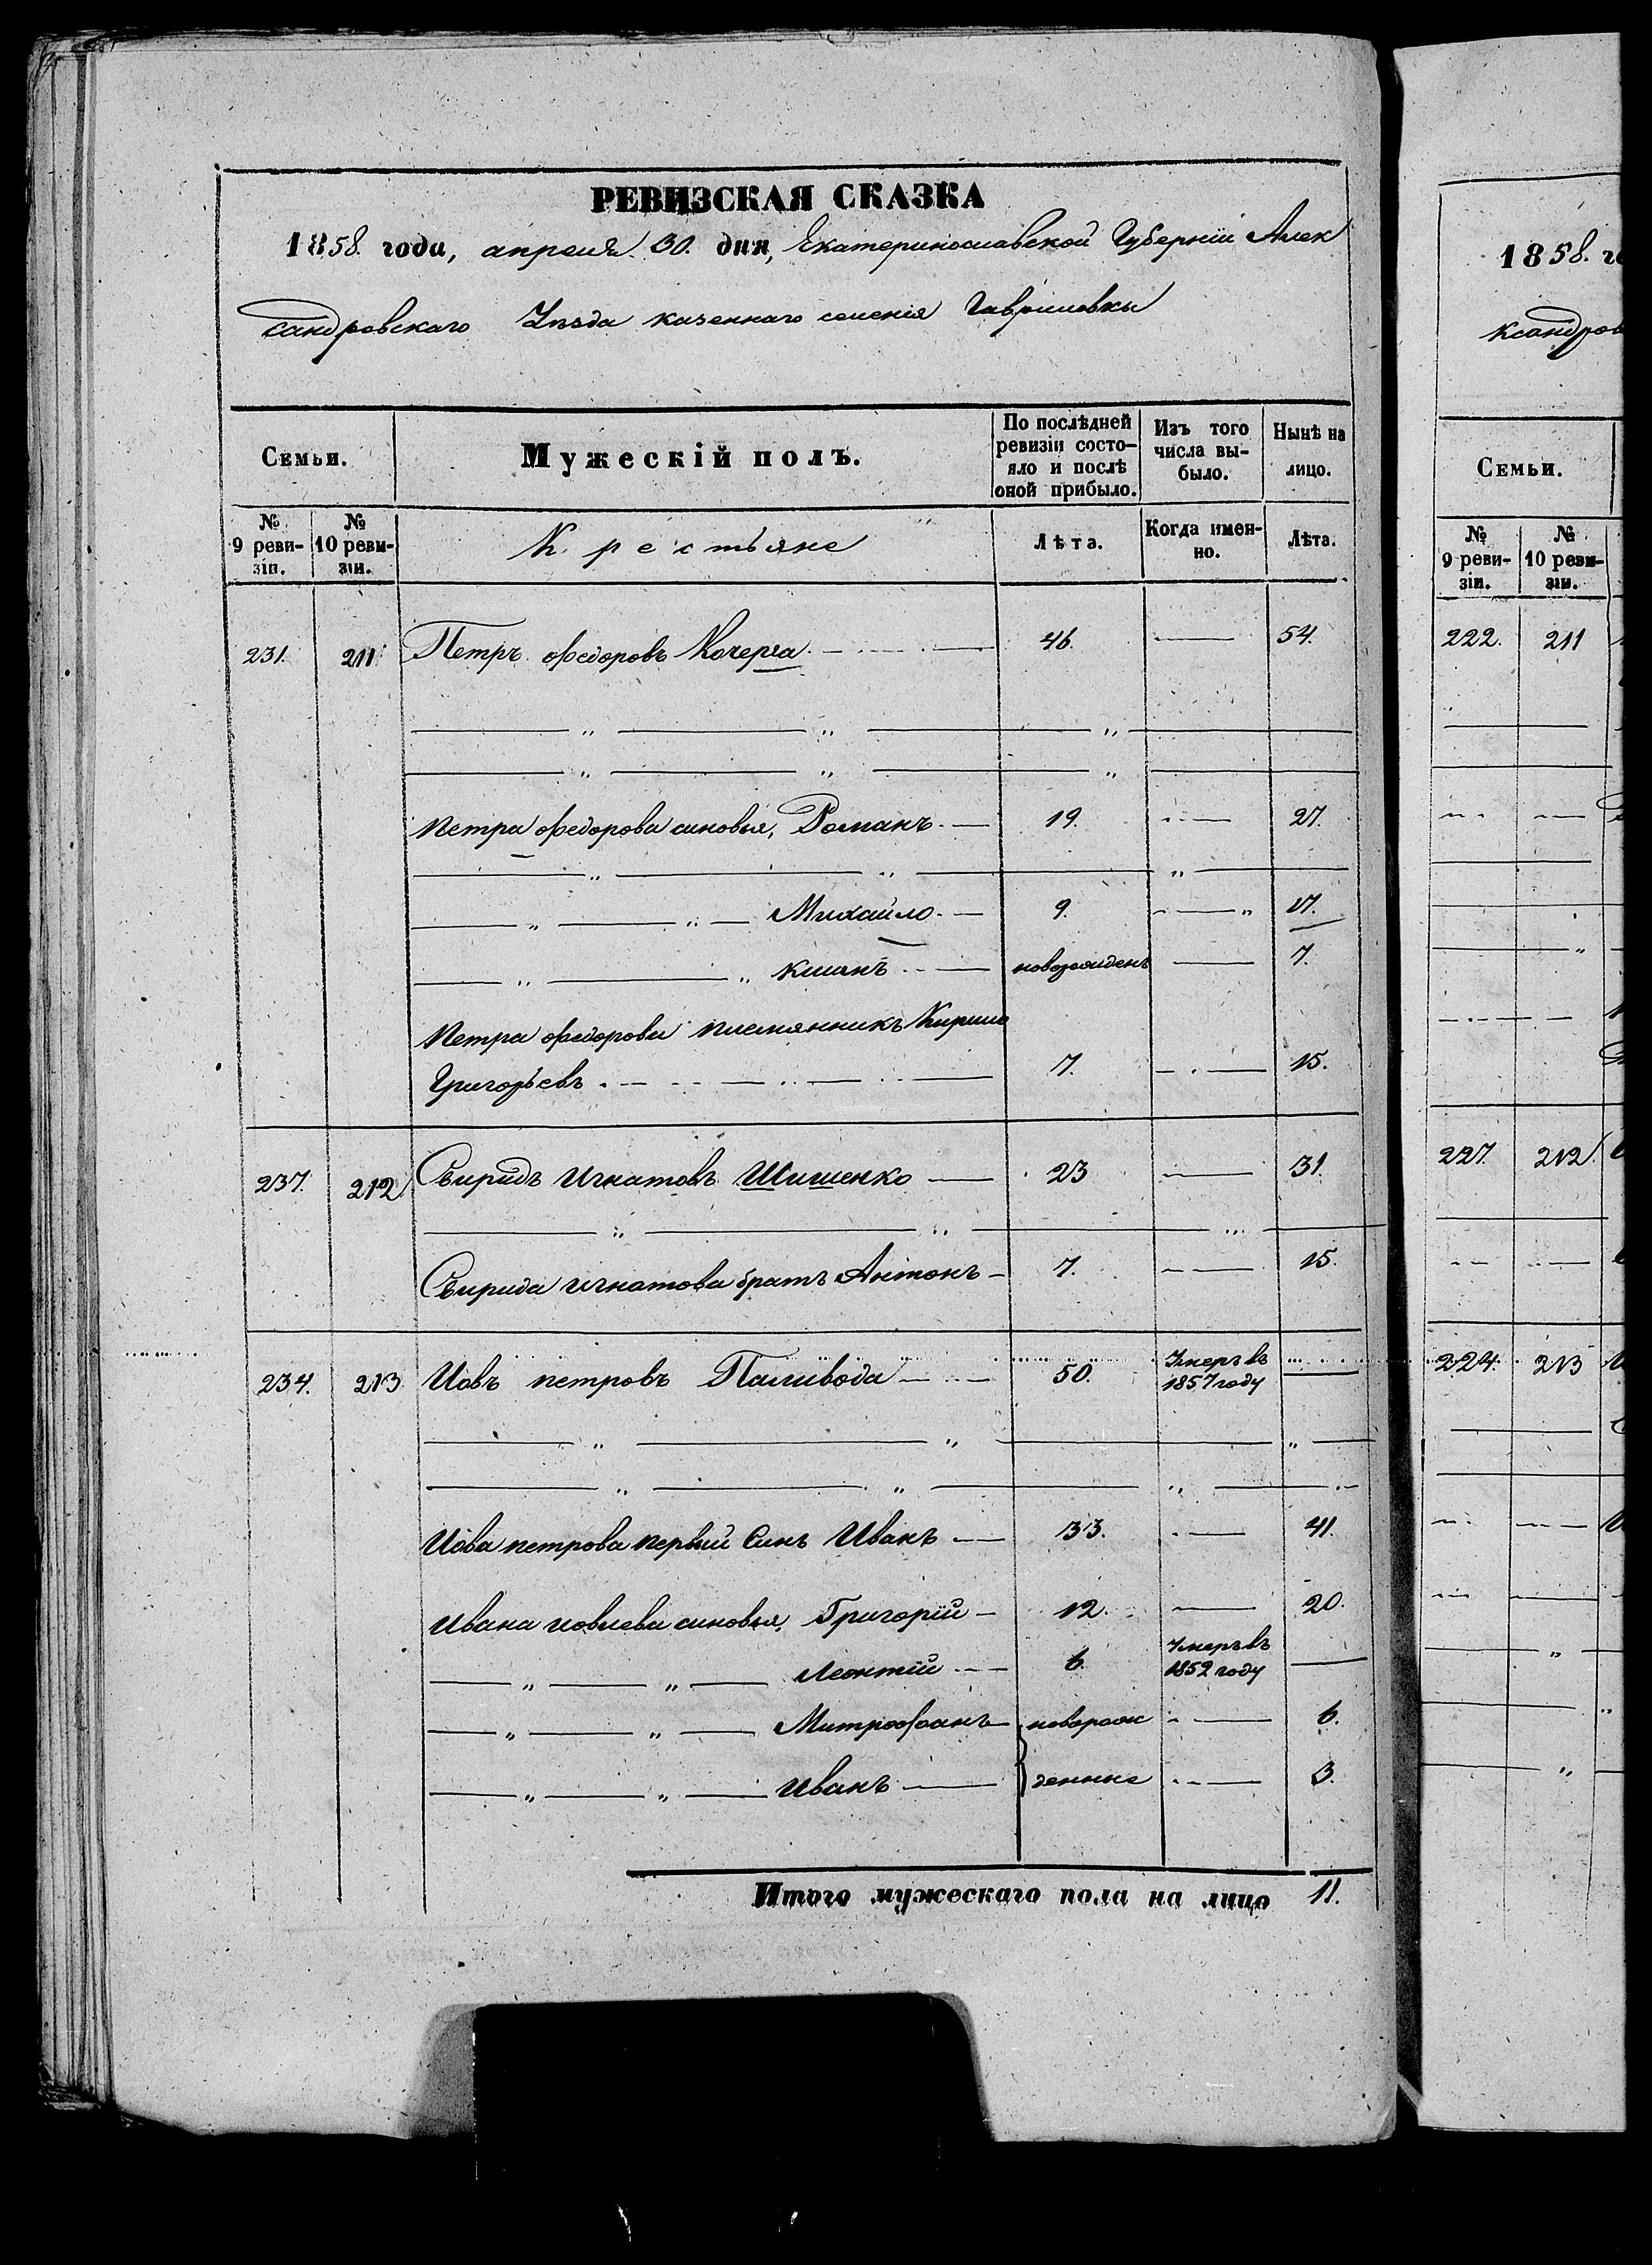 РЕВИЗСКАЯ СКАЗКА
1858. года, апреля 30. дня, Екатеринославской Губерніи Алек
сандровскаго Уѣзда казеннаго селенія Гавриловки
Семьи.
Мужескій полъ.
По послѣдней
ревизіи состо-
яло и послѣ
оной прибыло.
Изъ того
числа вы-
было.
Нынѣ на
лицо.
№ 9 реви-
зіи.
№ 10 реви-
зіи.
Крестьяне
Лѣта.
Когда имен-
но.
Лѣта.
231. 211 Петръ Федоровъ Кочерга 46. 54.
Петра Федорова сыновья, Романъ 19. 27.
Михайло 9. 17.
новорожденъ 7.
Петра Федорова племянникъ Кирило
Григорьевъ 7. 15.
237. 212 Свиридъ Игнатовъ Шишенко 23 31.
Свирида Игнатова братъ Антонъ 7. 15.
234. 213 Иовъ петровъ Паливода 50. Умеръ въ
1857 году
Иова петрова первый Синъ Иванъ 33. 41.
Ивана иовлева сыновья, Григорій 12. 20.
Леонтій 6. Умеръ въ
1852 году
Митрофанъ новорож 6.
Иванъ денные 3.
Итого мужескаго пола на лицо 11.
1858. го
ксандров
Семьи.
№ 9 реви-
зіи.
№ 10 реви-
зіи.
222. 211
227. 212
224. 213